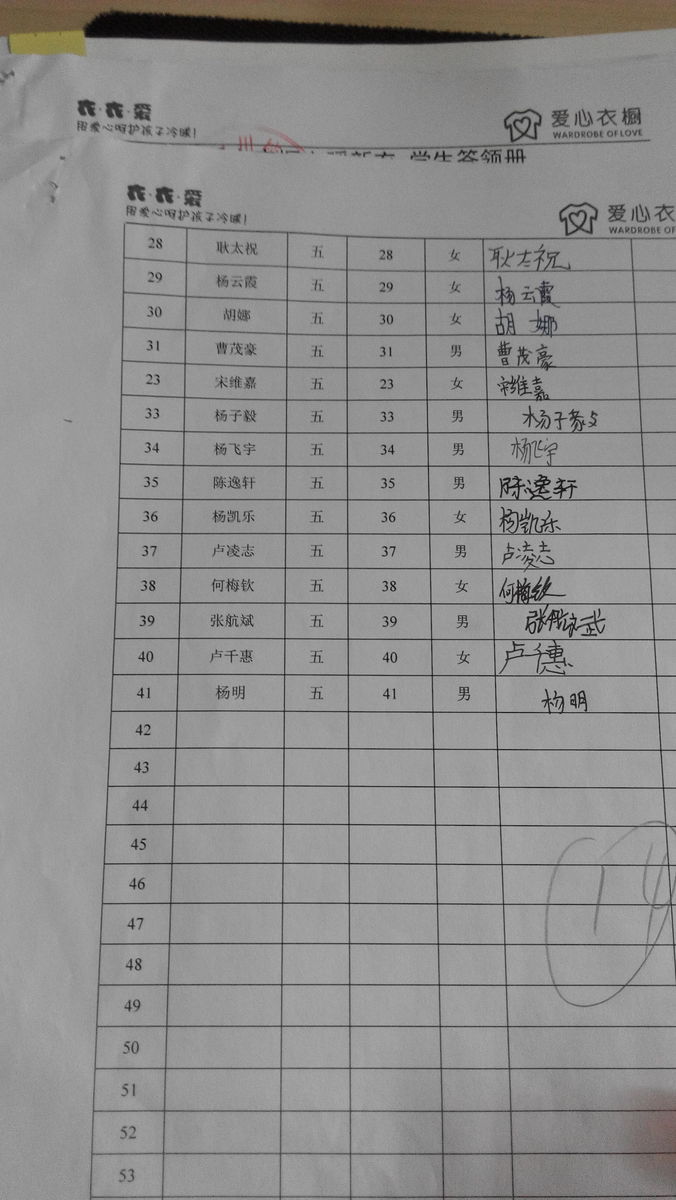 衣·衣·爱
用爱心呵护孩子冷暖!
爱心衣橱
WARDROBE OF LOVE
暖新衣 学生签领册
衣·衣·爱
用爱心呵护孩子冷暖!
爱心衣
WARDROBE OF
28 耿太祝 五 28 女 耿太祝
29 杨云霞 五 29 女 杨云霞
30 胡娜 五 30 女 胡娜
31 曹茂豪 五 31 男 曹茂豪
23 宋维嘉 五 23 女 宋维嘉
33 杨子毅 五 33 男 杨子毅
34 杨飞宇 五 34 男 杨飞宇
35 陈逸轩 五 35 男 陈逸轩
36 杨凯乐 五 36 女 杨凯乐
37 卢凌志 五 37 男 卢凌志
38 何梅钦 五 38 女 何梅钦
39 张航斌 五 39 男 张航斌
40 卢千惠 五 40 女 卢千惠
41 杨明 五 41 男 杨明
42
43
44
45
46
14
47
48
49
50
51
52
53